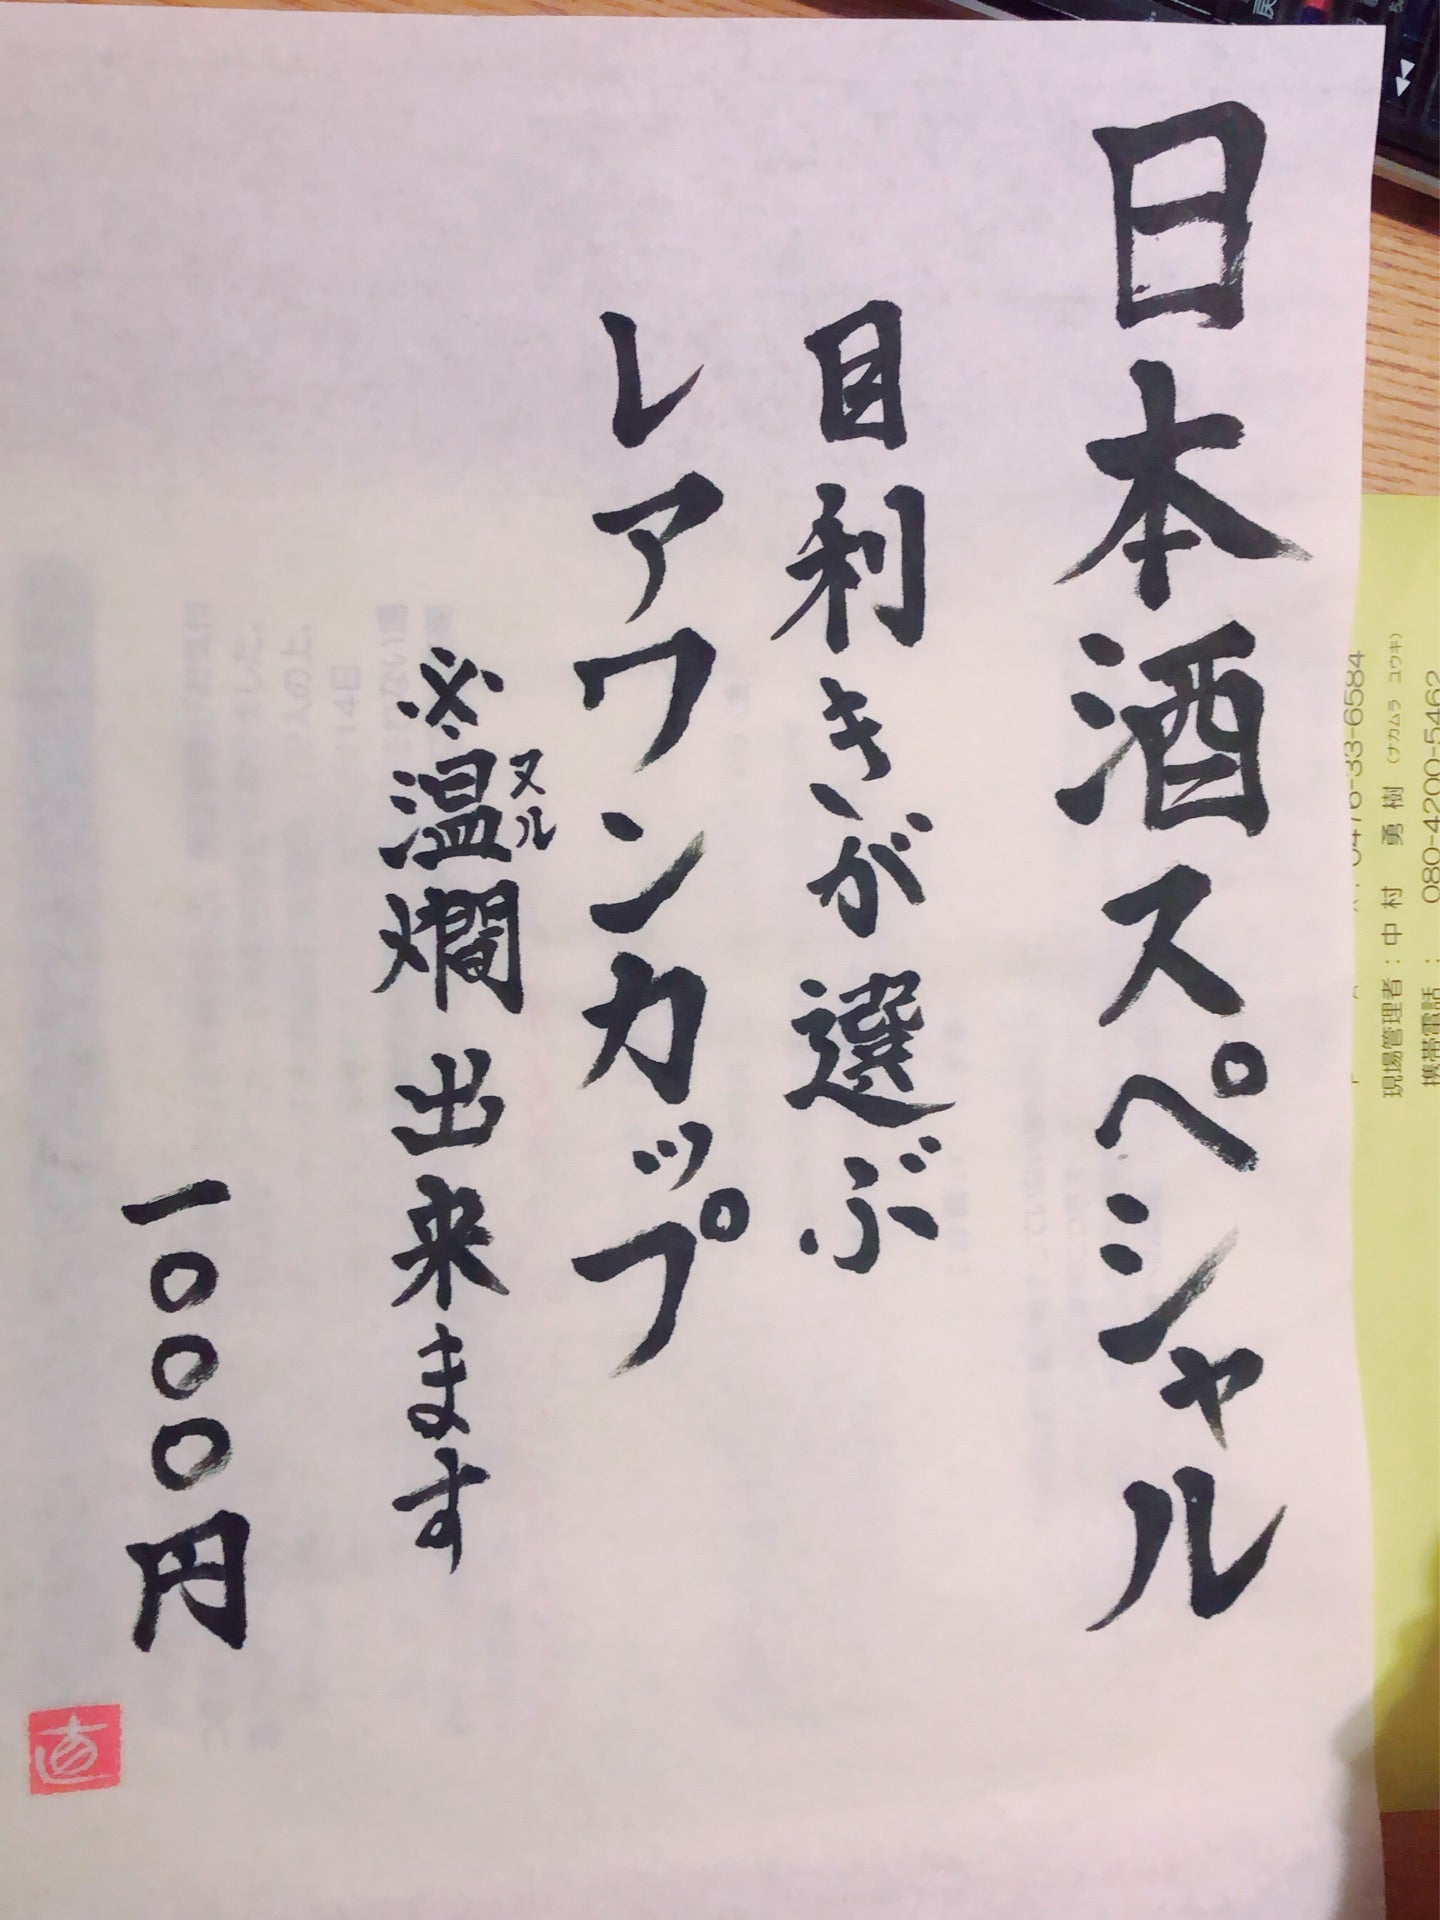 日本酒スペシャル
目利きが選ぶ
レアワンカップ
※温燗出来ます
ヌル
一〇〇〇円
直
現場管理者：中村 勇樹（ナカムラ ユウキ）
携帯電話：080-4200-5462
0476-33-6584